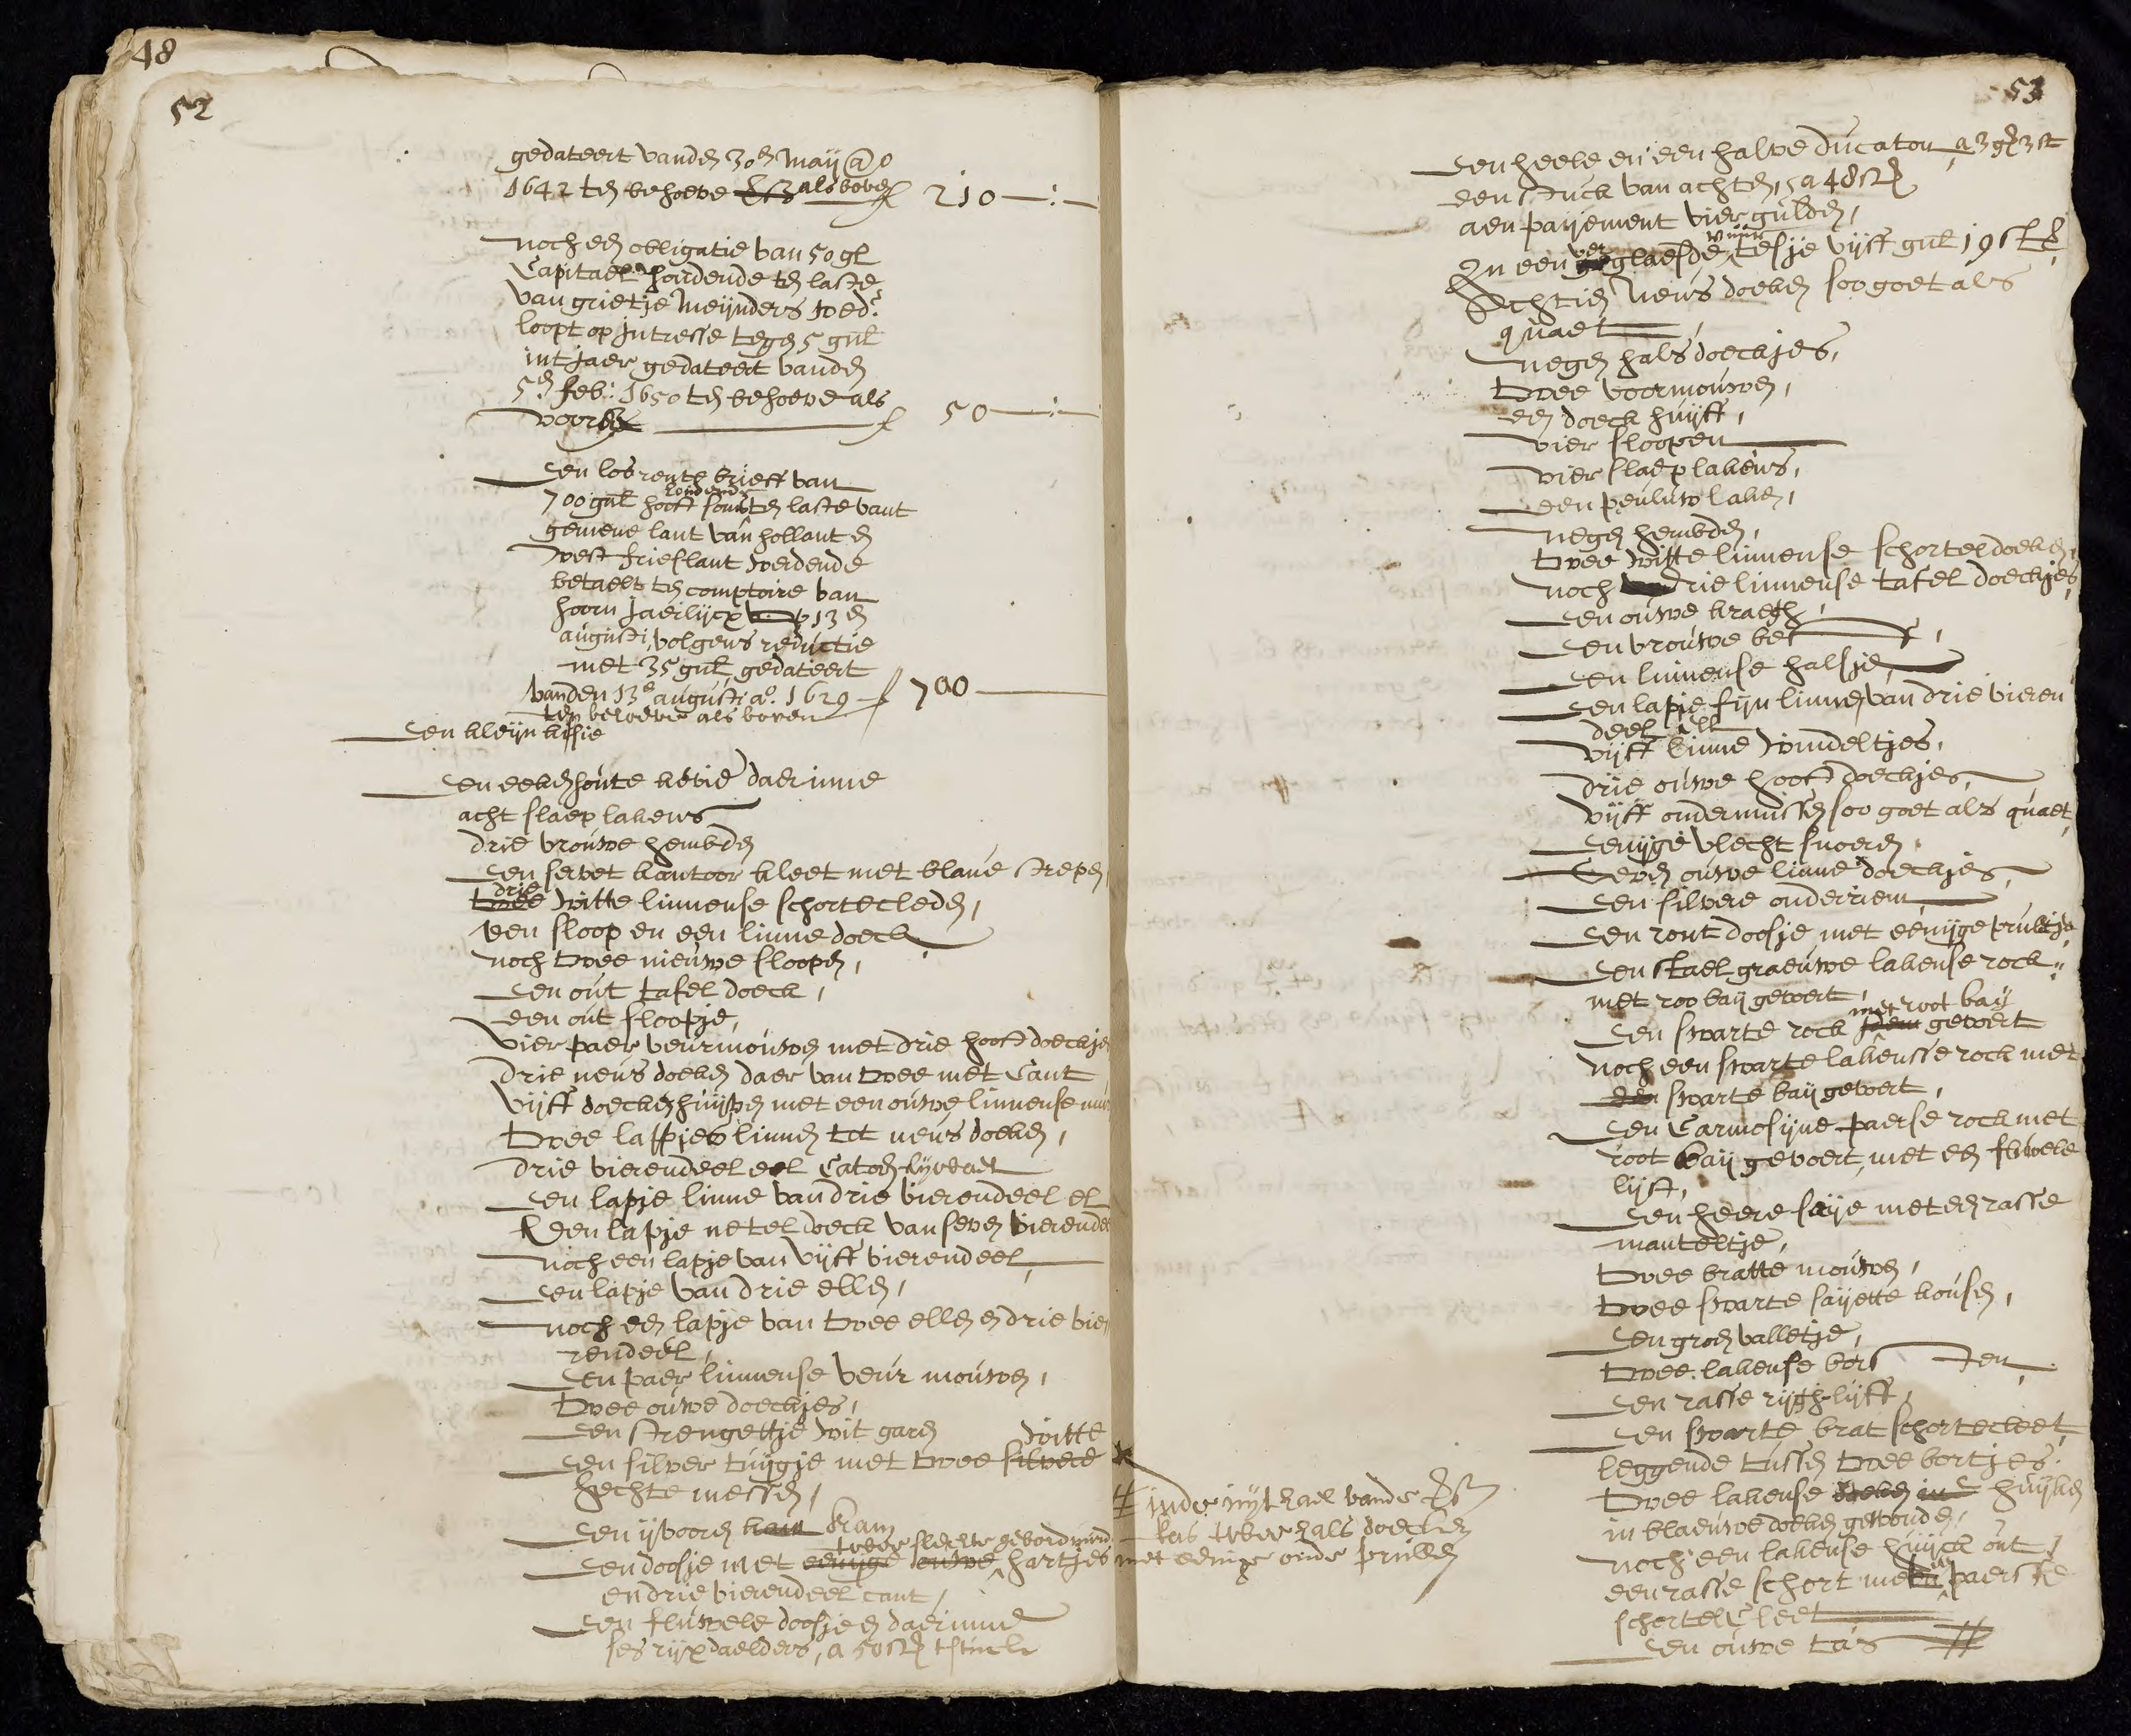 48
52
gedateert vanden 30en maij @o
1642 ten behoeve als boven f 210—:—
noch een obligatie van 50 gl
Capitael houdende ten laste
van grietje meijnders wed.e
loopt op intresse tegen 5 gul
int jaer gedateert vanden
5en feb: 1650 ten behoeve als
voorsz f 50—:—
Een losrente brieff van
700 gul hooft som houdende ten laste vant
gemene lant van hollant en
west frieslant werdende
betaelt ten comptoire van
hoorn jaerlijcx 13 en
augusti, volgens reductie
met 35 gul, gedateert
vanden 13e augusti ao. 1629 f 700—
ten behoeve als boven
Een kleijn kisje
Een eekenhoute kevie daerinne
acht slaeplakens
drie vrouwe hembden
Een servet kantoor kleet met blaue strepen
twee drie witte linnense schortecleden,
een sloop en een linne doeck
noch twee nieuwe sloopen,
Een out tafel doeck,
een out sloopje,
vier paer veurmouwen met drie hooft doeckjes
drie neusdoeken daer van twee met Cant
vijff doecken huijven met een ouwe linnense
twee lappjes linnen tot neusdoeken,
drie vierendeel eel Catoen
Een lapje linne van drie vierendeel el
Een lapje neteldoeck van seven vierendeel
noch een lapje van vijff vierendeel,
Een lapje van drie ellen,
noch een lapje van twee ellen en drie vie,
rendeel,
Een paer linnense veur mouwen,
twee ouwe doeckjes,
Een strengettje wit garen
Een silver tuijgje met twee silvere witte
hechte messen,
Een ijvooren kam kam
Een doosje met eenijge ouwe twee slechte geborduurde hartjes
en drie vierendeel cant,
Een fluwele doosje en daerinne
ses rijxdaelders, a 50 st t stuck
53
Een heele en een halve ducaton a 3 gl 3 st
een stuck van achten, a 48 st
aen payement vier gulden,
In een verglaesde vuur tesje vijff gul 19 st
Achtien neusdoeken soo goet als
quaet
negen hals doeckjes,
twee voormouwen,
een doeck huijff,
vier sloopen
vier slaeplakens,
een peuluw laken,
negen hembden,
twee witte linnense schorteldoeken,
noch drie linnense tafel doeckjes,
Een ouwe kraegh,
Een vrouwe bef,
Een linnense halsje,
Een lapje fijn linnen van drie vieren
deel ell
vijff linne windeltjes,
drie ouwe hooft doeckjes,
vijff ondermussen soo goet als quaet,
Eenijge vlecht snoeren,
Seven ouwe linne doeckjes,
Een silvere onderriem
Een ront doosje met eenijge prulletje
Een stael graeuwe lakense rock
met roo baij gevoert,
Een swarte rock idem met root baij gevoert
noch een swarte lakensse rock met
een swarte baij gevoert,
Een Carmosijne paerse rock met
root baij gevoert, met een fluwele
lijst,
Een heere saije met een rasse
manteltje,
twee bratte mouwen,
twee swarte sayette housen,
Een groen valletje,
twee lakense borsten,
Een rasse rijgh-lijff,
Een swarte brat schortecleet,
leggende tussen twee bortjes,
twee lakense doeken in huijken
in blaeuwe doeken gewonden,
noch een lakense huijck out,
een rasse schort paerse
schortel Cleet
Een ouwe tas #
# inde vande
kas twee hals doecken
met eenige oude prullen